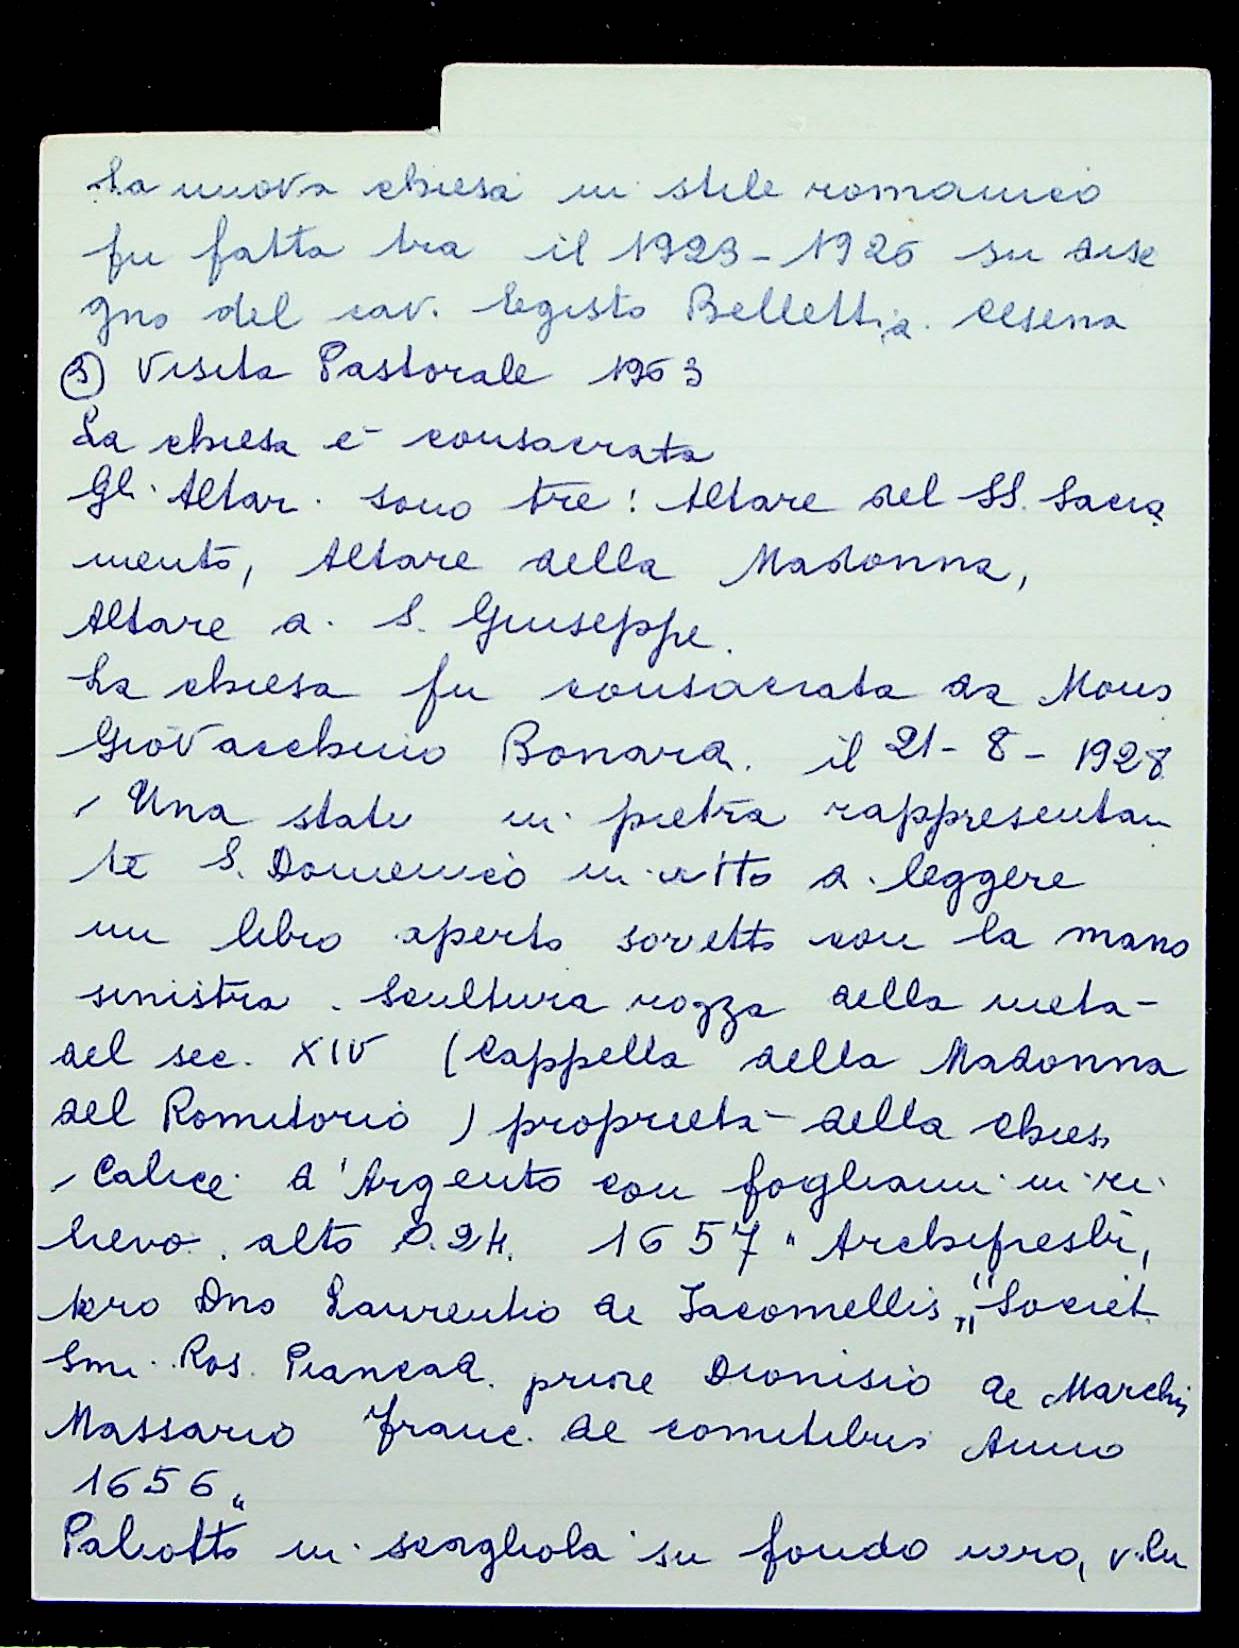 La nuova chiesa in stile romanico
fu fatta tra il 1923-1926 su dise
gno del cav. Egisto Bellettia. Cesena
③ Visita Pastorale 1963
La chiesa è consacrata
Gli Altari sono tre: Altare del SS. Sacra
mento, Altare della Madonna,
Altare a. S. Giuseppe.
La chiesa fu consacrata da Mons
Giovacchino Bonara. il 21-8-1928
, Una statu in pietra rappresentan
te S. Domenico in atto a leggere
un libro aperto sorretto con la mano
sinistra. Scultura rozza della metà
del sec. XIV (Cappella della Madonna
del Romitorio) proprietà della chies
, Calice d'Argento con fogliami in ri
lievo. alto 0.24. 1657 "Archipresbi,
tero Dno Laurentio de Jacomellis," "Societ.
Smi. Ros. Piancad. priore Dionisio de Marchis
Massario Franc. de comitibus Anno
1656"
Paliotto in scagliola su fondo nero,